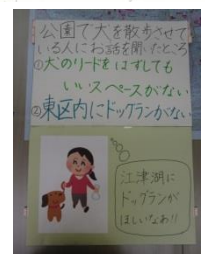 公園で犬を散歩させて
いる人にお話を聞いたところ
①犬のリードをはずしても
いいスペースがない
②東区内にドッグランがない
江津湖に
ドッグランが
ほしいなわ!!